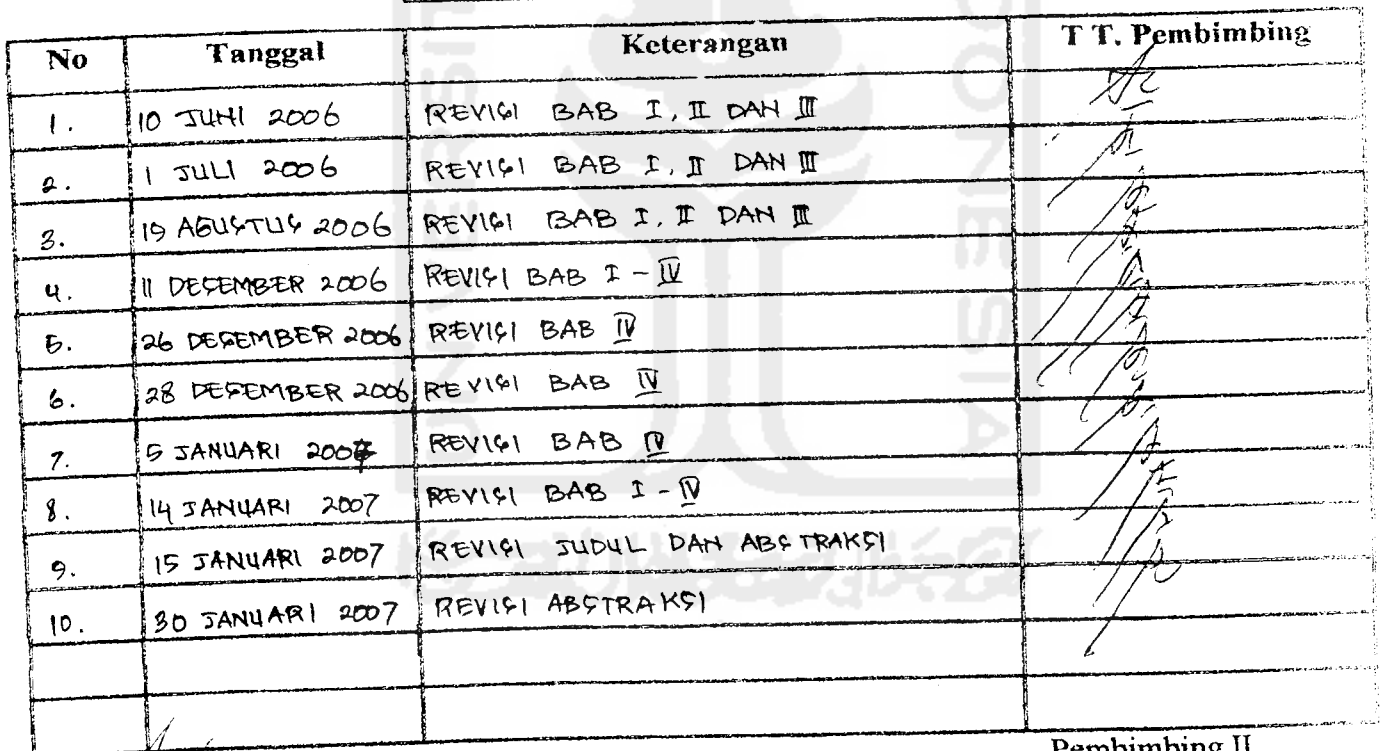 No Tanggal Keterangan T T. Pembimbing
1. 10 JUNI 2006 REVISI BAB I, II DAN III
2. 1 JULI 2006 REVISI BAB I, II DAN III
3. 19 AGUSTUS 2006 REVISI BAB I, II DAN III
4. 11 DESEMBER 2006 REVISI BAB I - IV
5. 26 DESEMBER 2006 REVISI BAB IV
6. 28 DESEMBER 2006 REVISI BAB IV
7. 5 JANUARI 2007 REVISI BAB IV
8. 14 JANUARI 2007 REVISI BAB I - IV
9. 15 JANUARI 2007 REVISI JUDUL DAN ABSTRAKSI
10. 30 JANUARI 2007 REVISI ABSTRAKSI
Pembimbing II